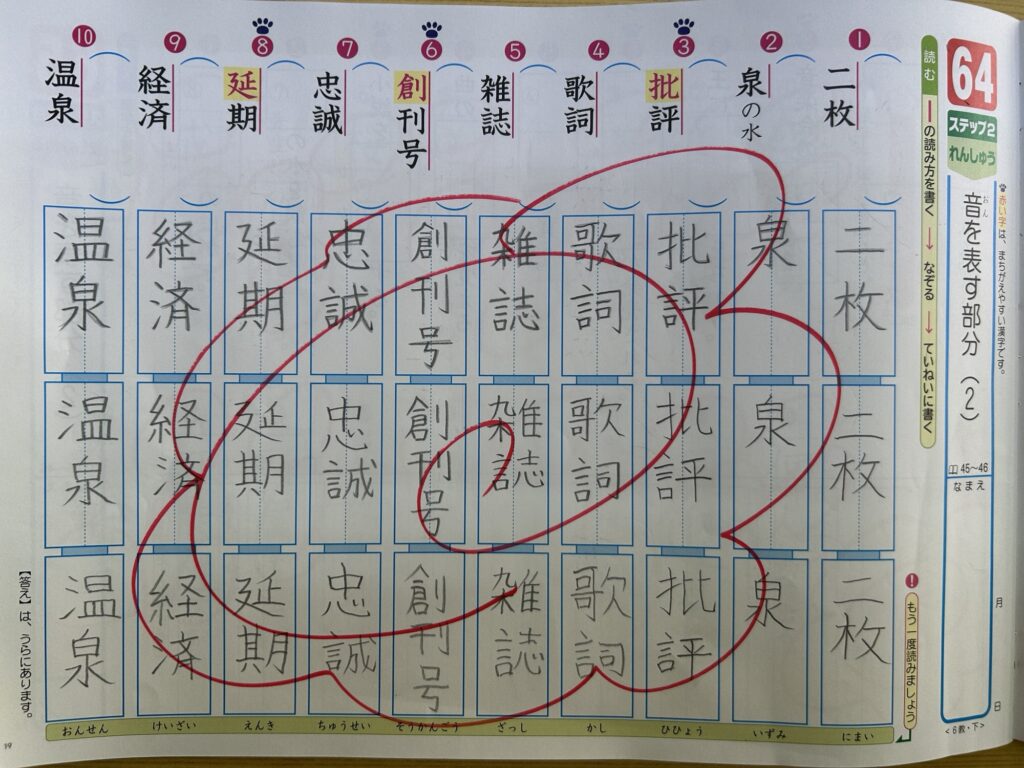 64
ステップ2
れんしゅう
赤い字は、まちがえやすい漢字です。
音を表す部分(2)
おん
45〜46
なまえ
月
日
<6教・下>
読む
の読み方を書く→なぞる→ていねいに書く
！
もう一度読みましょう
1
二枚
二枚
二枚
二枚
にまい
2
泉の水
泉
泉
泉
いずみ
3
批評
批評
批評
批評
ひひょう
4
歌詞
歌詞
歌詞
歌詞
かし
5
雑誌
雑誌
雑誌
雑誌
ざっし
6
創刊号
創刊号
創刊号
創刊号
そうかんごう
7
忠誠
忠誠
忠誠
忠誠
ちゅうせい
8
延期
延期
延期
延期
えんき
9
経済
経済
経済
経済
けいざい
10
温泉
温泉
温泉
温泉
おんせん
【答え】は、うらにあります。
19